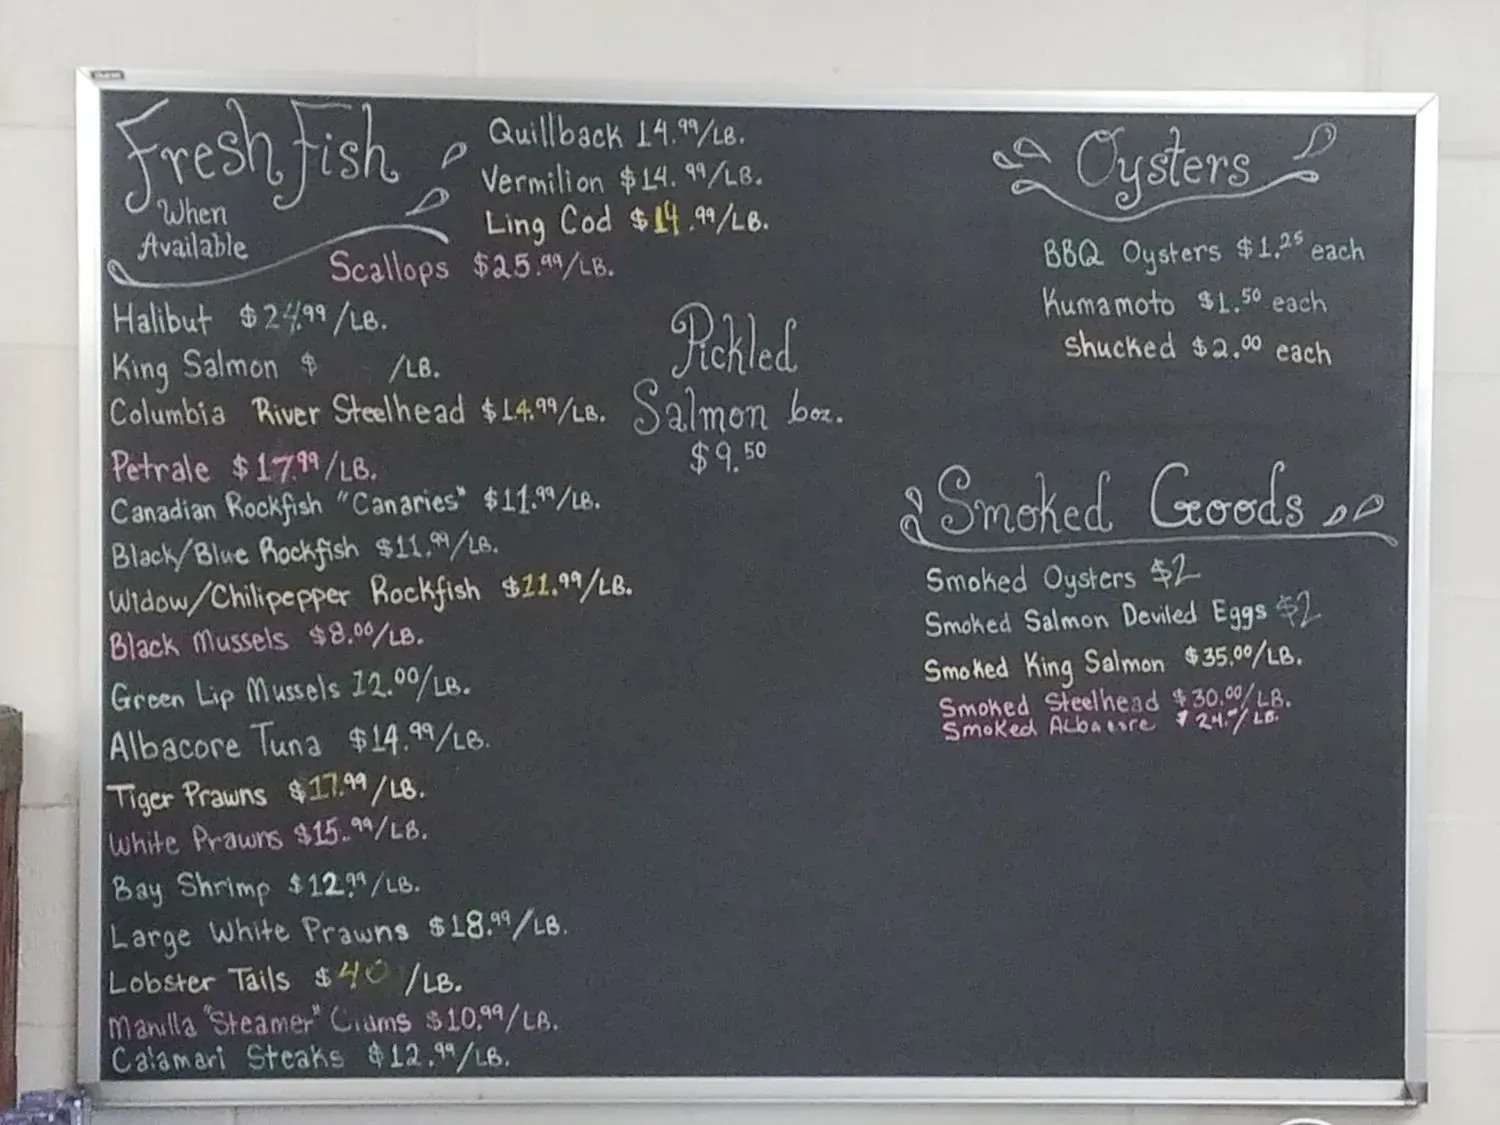 Fresh Fish
When
Available
Quillback 14.99/LB.
Vermilion $14.99/LB.
Ling Cod $14.99/LB.
Scallops $25.99/LB.
Halibut $24.99/LB.
King Salmon $ /LB.
Columbia River Steelhead $14.99/LB.
Petrale $17.99/LB.
Canadian Rockfish "Canaries" $11.99/LB.
Black/Blue Rockfish $11.99/LB.
Widow/Chilipepper Rockfish $11.99/LB.
Black Mussels $8.00/LB.
Green Lip Mussels 12.00/LB.
Albacore Tuna $14.99/LB.
Tiger Prawns $17.99/LB.
White Prawns $15.99/LB.
Bay Shrimp $12.99/LB.
Large White Prawns $18.99/LB.
Lobster Tails $40 /LB.
Manilla "Steamer" Clams $10.99/LB.
Calamari Steaks $12.99/LB.
Pickled
Salmon 6oz.
$9.50
Oysters
BBQ Oysters $1.25 each
Kumamoto $1.50 each
Shucked $2.00 each
Smoked Goods
Smoked Oysters $2
Smoked Salmon Deviled Eggs $2
Smoked King Salmon $35.00/LB.
Smoked Steelhead $30.00/LB.
Smoked Albacore $24. /LB.